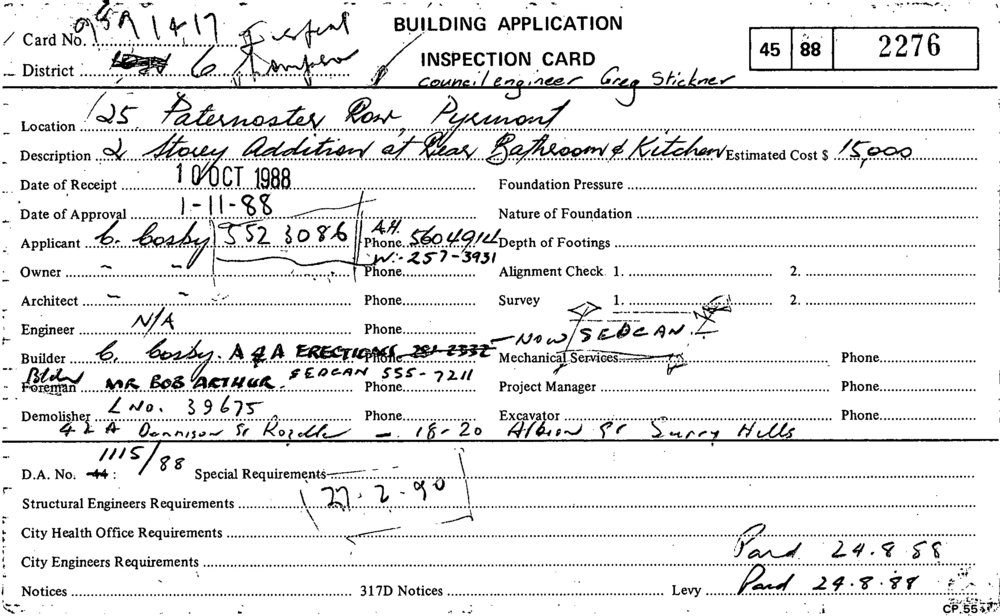 BUILDING APPLICATION
Card No. 9SA 1417
INSPECTION CARD 45 88 2276
District 6
Council engineer Greg Stickner
Location 25 Paternoster Row, Pyrmont
Description 2 Storey Addition at Rear Bathroom & Kitchen Estimated Cost $ 15,000
Date of Receipt 10 OCT 1988 Foundation Pressure
Date of Approval 1-11-88 Nature of Foundation
Applicant C. Cosby 552 3086 A.H. Phone 5604914 Depth of Footings
W:- 257-3931
Owner " " Phone Alignment Check 1. 2.
Architect " " Phone Survey 1. 2.
Engineer N/A Phone - NOW SEDCAN
Builder C. Cosby. A & A ERECTIONS Phone 281-2332 Mechanical Services Phone
Bldr SEDCAN 555-7211
Foreman MR BOB ARTHUR. Phone Project Manager Phone
Demolisher L No. 39675 Phone Excavator Phone
42A Dennison St Rozelle - 18-20 Albion St Surry Hills
D.A. No. 44: 1115/88 Special Requirements
Structural Engineers Requirements 27.2.90
City Health Office Requirements
Paid 24.8 88
City Engineers Requirements
Notices 317D Notices Levy Paid 24.8.88